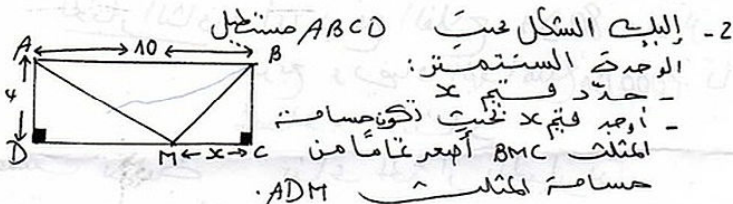 2- إليك الشكل حيث ABCD مستطيل
الوحدة السنتمتر:
- حدّد قيم x
- أوجد قيم x بحيث تكون مساحة
المثلث BMC أصغر تمامًا من
مساحة المثلث ADM.
A 10 B
4
D M x C